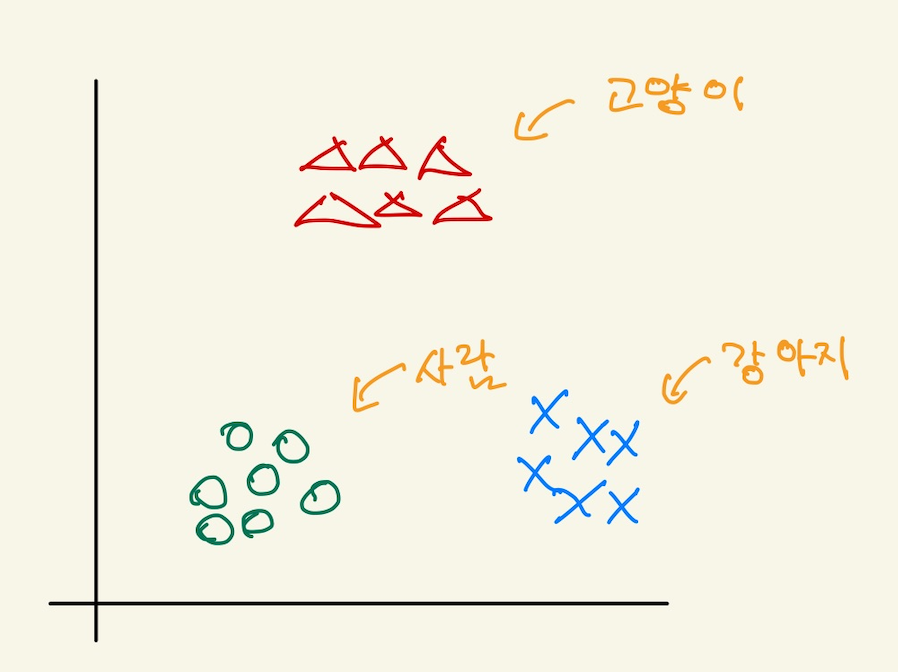 고양이
사람
강아지